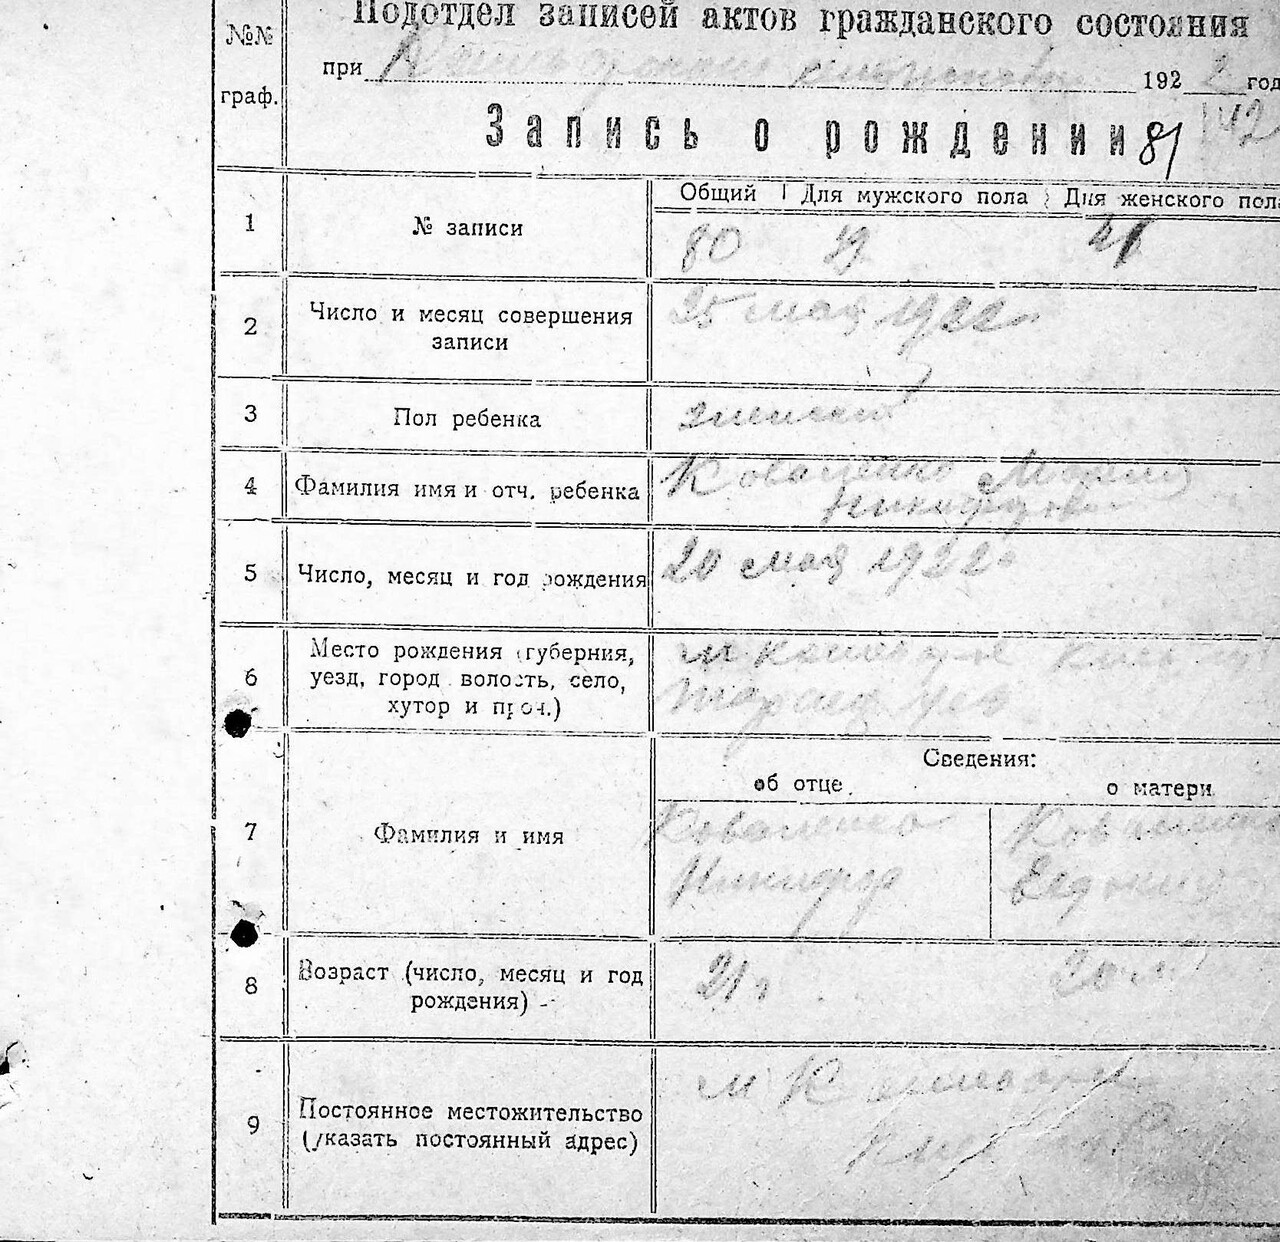 Подотдел записей актов гражданского состояния
№№
граф.
при 192 2 год
142
Запись о рождении 81
Общий Для мужского пола Для женского пол
1 № записи 80 39 41
2 Число и месяц совершения
записи
25 мая 1922
3 Пол ребенка женский
4 Фамилия имя и отч. ребенка Коваленко Мария
Никифоровн
5 Число, месяц и год рождения 20 мая 1922
6 Место рождения (губерния,
уезд, город волость, село,
хутор и проч.)
м
Сведения:
об отце о матери
7 Фамилия и имя Коваленко Коваленко
Никифор Евдокия
8 Возраст (число, месяц и год
рождения) -
21 г 20 л
9 Постоянное местожительство
(указать постоянный адрес)
м